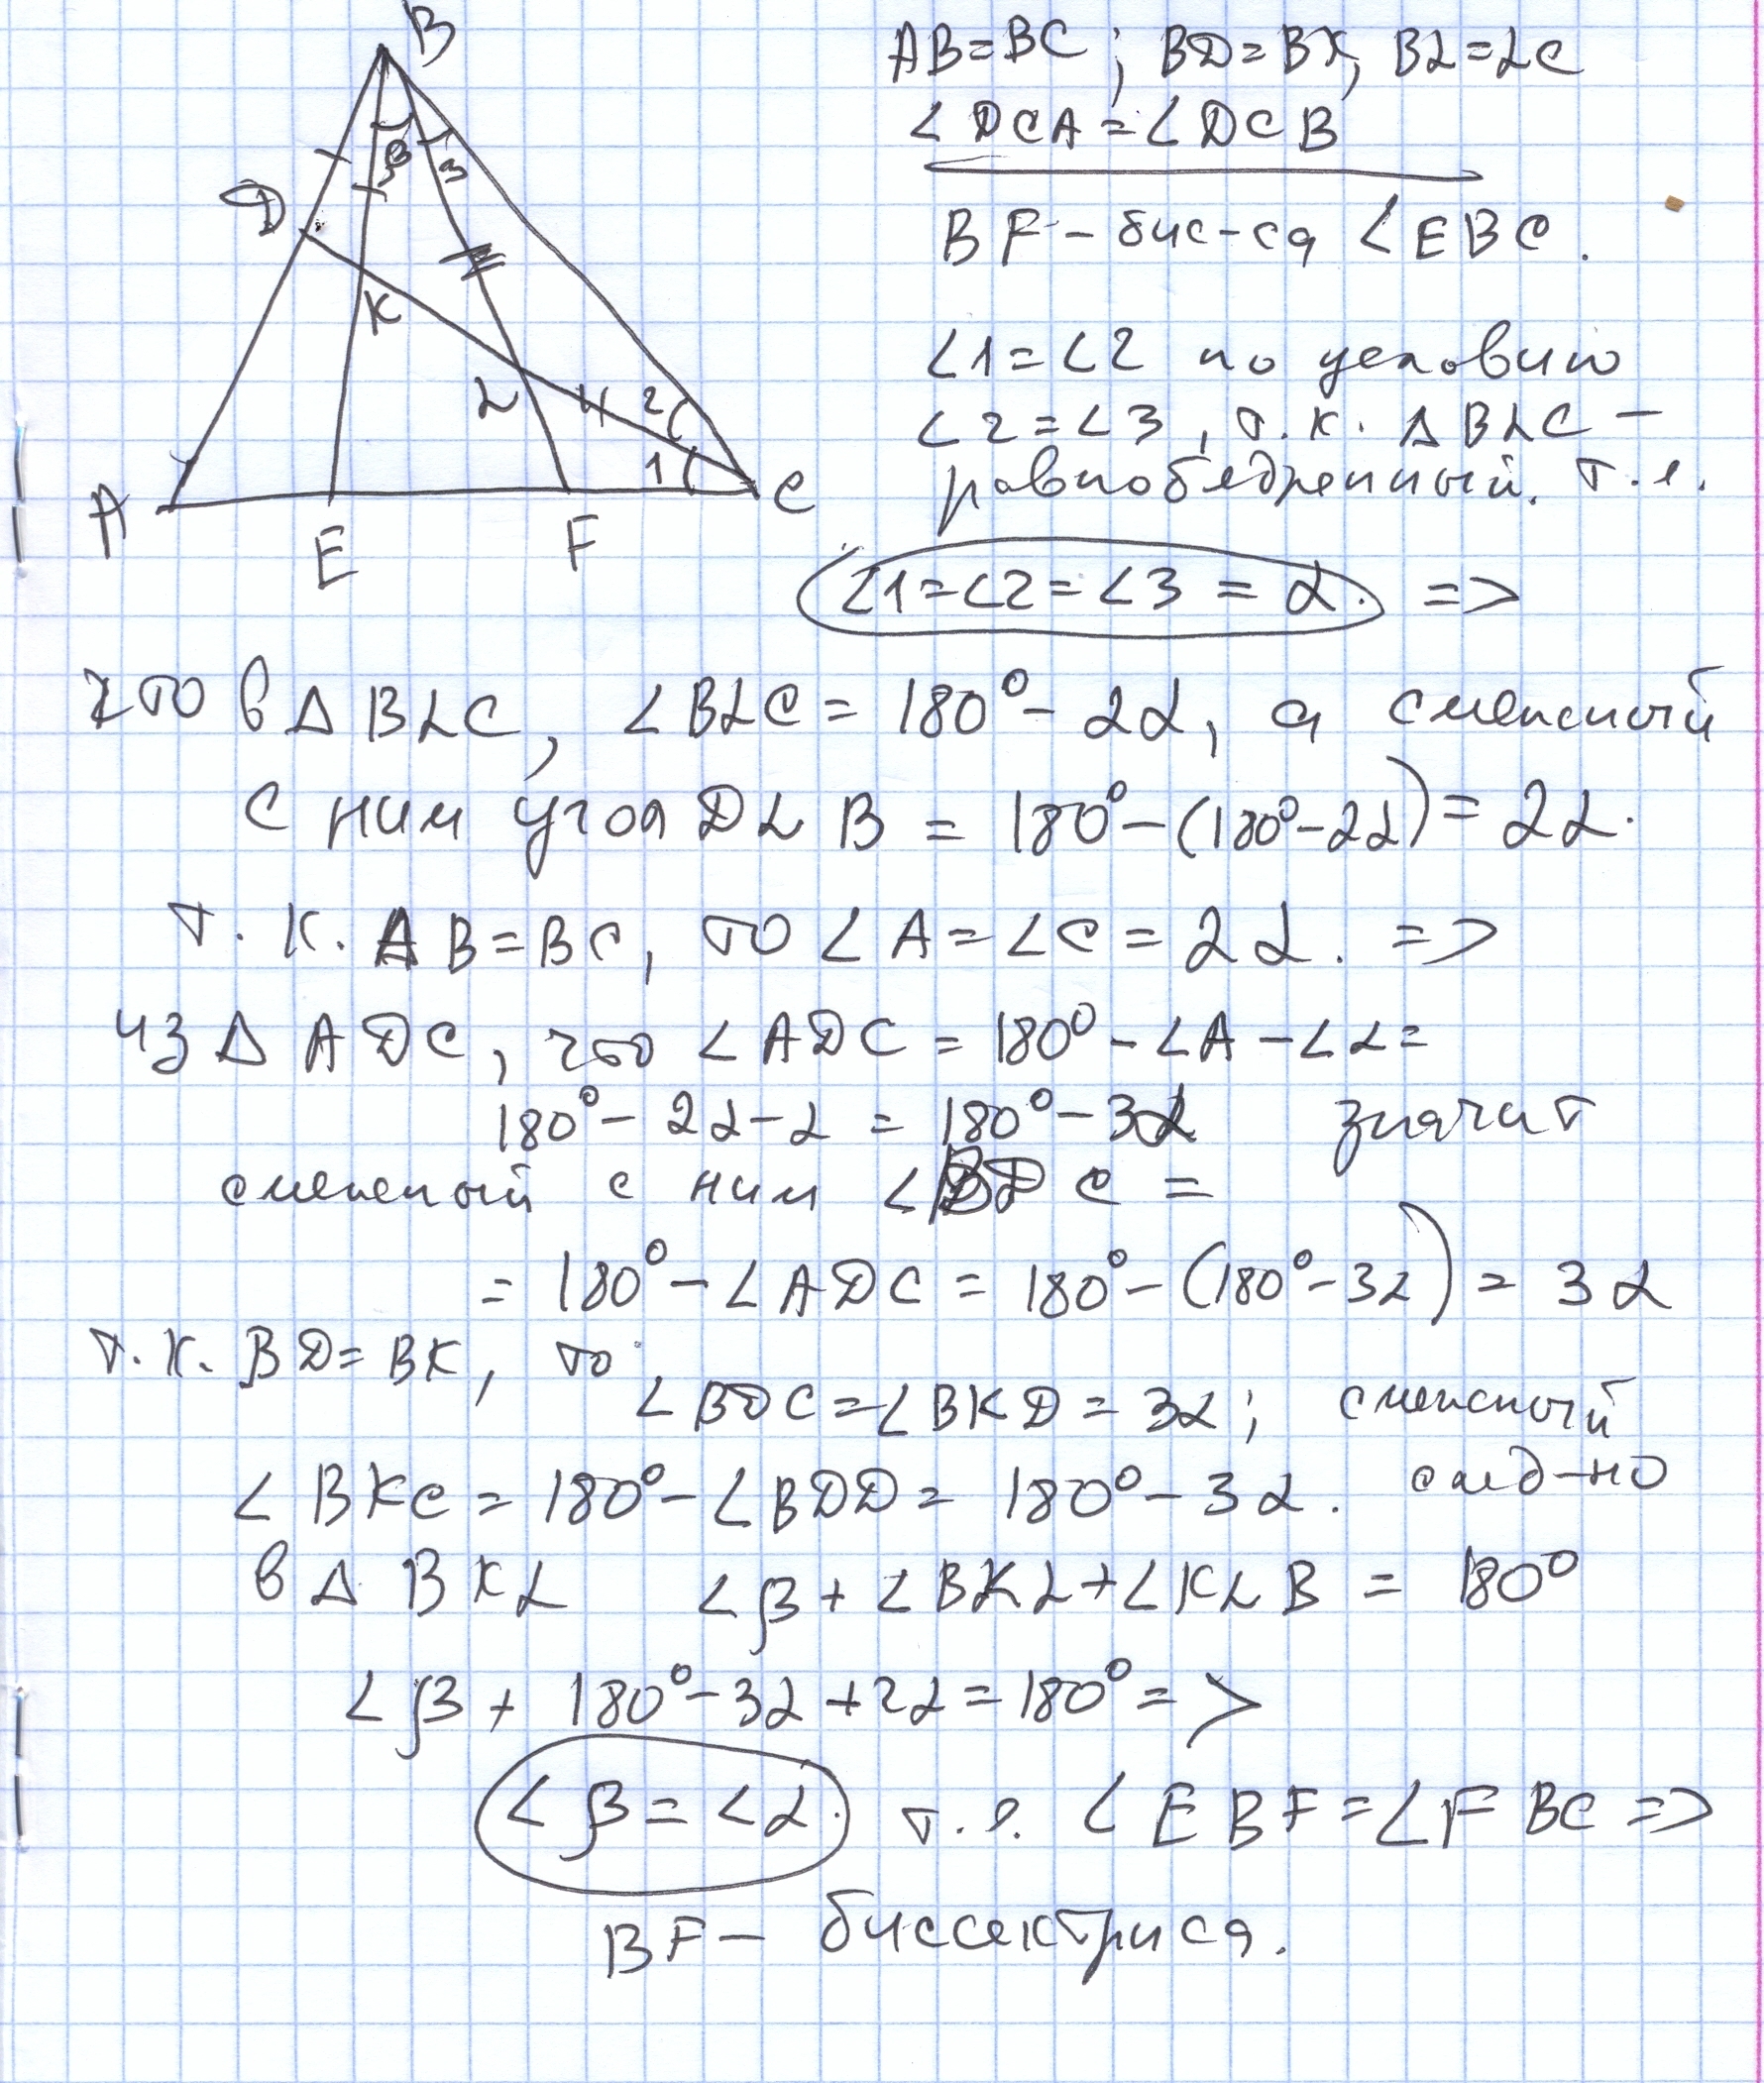 B
D
β
3
K
L
4
2
1
A
E
F
C
AB=BC; BD=BK, BL=LC
∠DCA=∠DCB
BF – бис-са ∠EBC.
∠1=∠2 по условию
∠2=∠3, т.к. ΔBLC –
равнобедренный. т.е.
∠1=∠2=∠3=α. =>
что в ΔBLC, ∠BLC = 180°-2α, а смежный
с ним угол DLB = 180°-(180°-2α) = 2α.
т.к. AB=BC, то ∠A=∠C=2α. =>
из ΔADC, что ∠ADC = 180°-∠A-∠α=
180°-2α-α = 180°-3α значит
смежный с ним ∠BDC =
= 180°-∠ADC = 180°-(180°-3α) = 3α
т.к. BD=BK, то
∠BDC=∠BKD=3α; смежный
∠BKC = 180°-∠BDD = 180°-3α. след-но
в ΔBKL ∠β+∠BKL+∠KLB = 180°
∠β + 180°-3α+2α=180° =>
∠β=∠α. т.е. ∠EBF=∠FBC =>
BF – биссектриса.